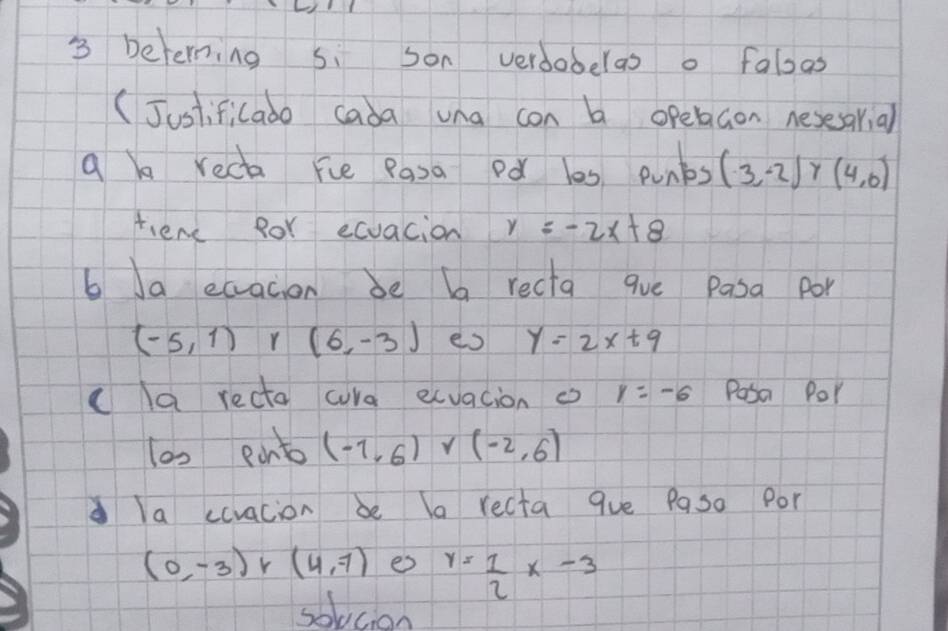 3 Determing si son verdoderas o falsas
(Justificado cada una con la operacion nesesaria)
a la recta Fue Pasa Por los puntos (3,-2) Y (4,0)
tiene Por ecuacion Y = -2x+8
b La ecuacion de la recta que Pasa Por
(-5,1) Y (6,-3) es Y = 2x+9
c la recta cuya ecuacion es Y = -6 Pasa Por
los punto (-1,6) Y (-2,6)
d la ecuacion de la recta que Paso Por
(0,-3) Y (4,-1) es Y = 1/2 x -3
solucion